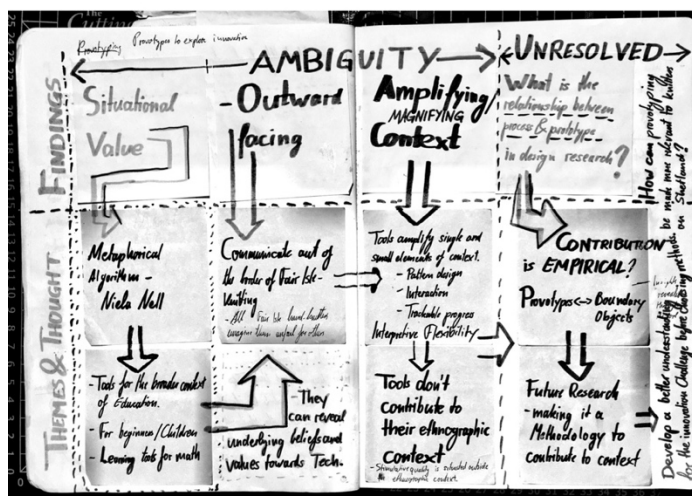 The Cutting
Provotyping
Provotypes to explore innovation
← AMBIGUITY →
← UNRESOLVED →
FINDINGS
Situational
Value
- Outward
facing
Amplifying/
MAGNIFYING
Context
What is the
relationship between
process & prototype
in design research?
THEMES & THOUGHT
Metaphorical
Algorithm -
Communicate out of
the border of Fair Isle-
Knitting
- All Fair Isle hand-knitters
Tools amplify simple and
small elements of context.
- Pattern design
- Interaction
- Trackable progress
Interpretive Flexibility
CONTRIBUTION
is EMPIRICAL?
Provotypes <-> Boundary
Objects
- Tools for the broader context
of Education.
- For beginners/Children
- Learning tools for math
- They
can reveal
underlying beliefs and
values towards Tech.
Tools don't
contribute to
their ethnographic
context
quality is situated outside
ethnographic context.
Future Research
- making it a
Methodology to
contribute to context
How can provotyping
be made more relevant to knitters
on Shetland?
Develop a better understanding
for the innovation Challenge before choosing methods.